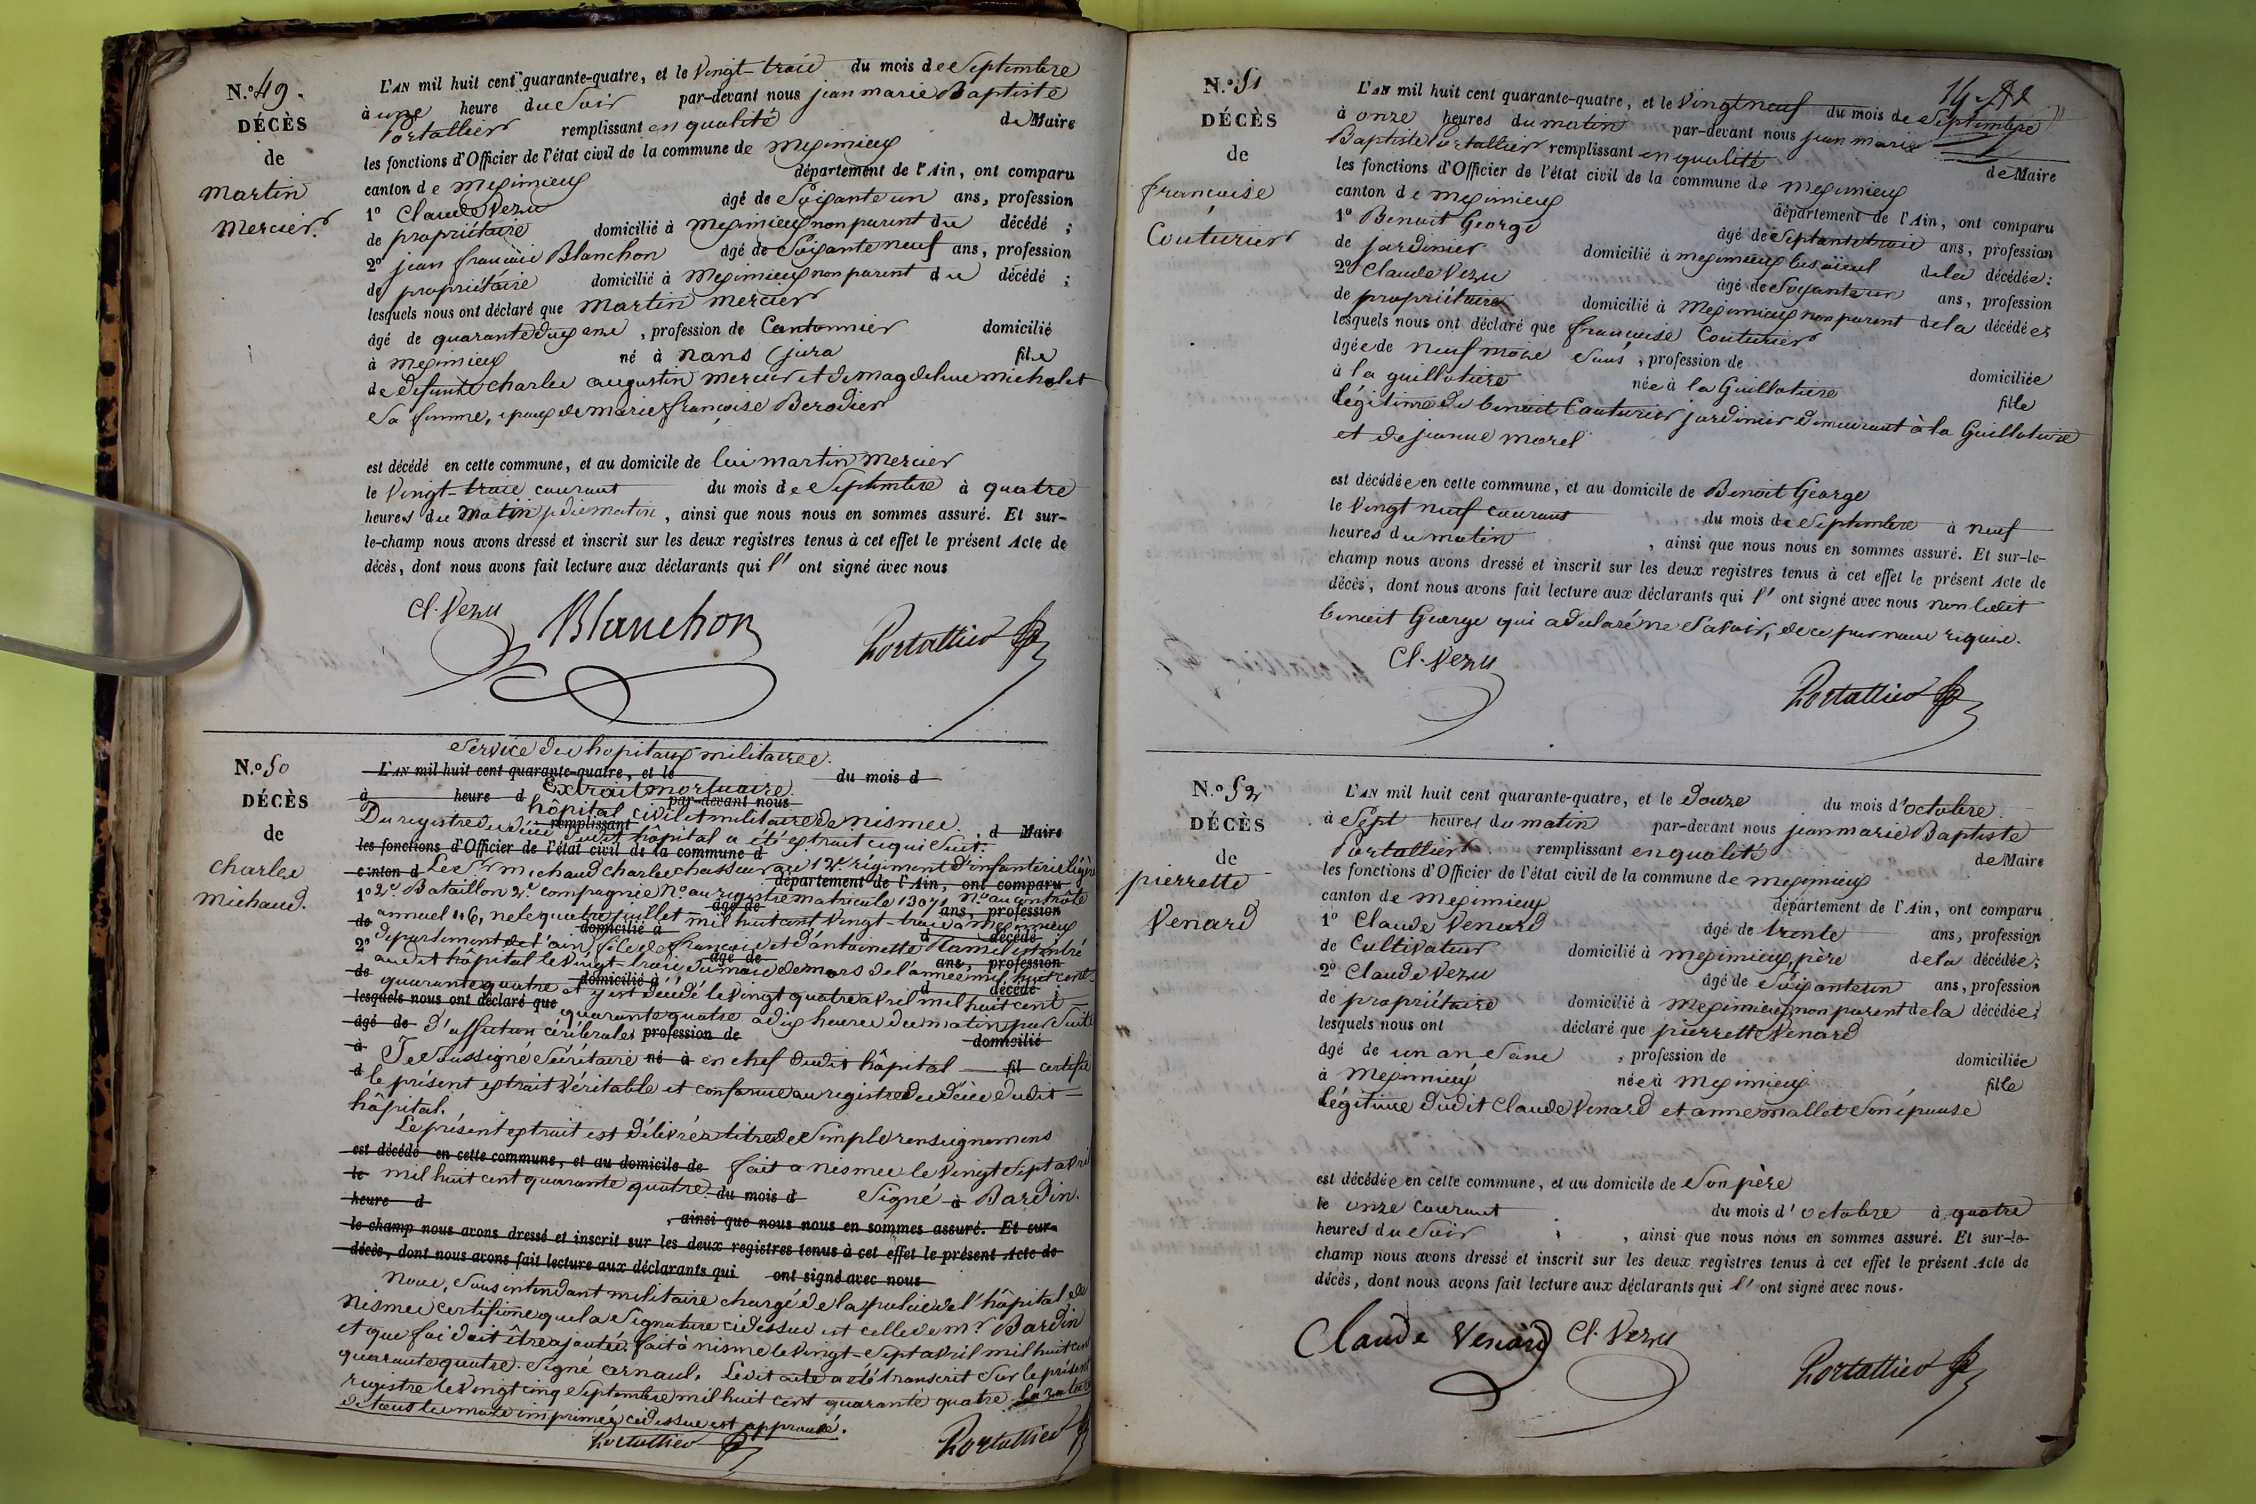 N.º 49.
DÉCÈS
de
Martin
Mercier.
L'AN mil huit cent quarante-quatre, et le Vingt-trois du mois de Septembre
à une heure du Soir par-devant nous jean marie Baptiste
Portallier remplissant en qualité de Maire
les fonctions d'Officier de l'état civil de la commune de meximieux
canton de meximieux département de l'Ain, ont comparu
1º Claude Vezu âgé de Soixante un ans, profession
de propriétaire domicilié à meximieux non parent du décédé ;
2º jean françois Blanchon âgé de Soixante neuf ans, profession
de propriétaire domicilié à meximieux non parent du décédé ;
lesquels nous ont déclaré que Martin mercier
âgé de quarante deux ans, profession de Cantonnier domicilié
à meximieux né à nans (jura fils
de defunts charles augustin mercier et de magdeleine michelet
Sa femme, epoux de marie françoise Berodier
est décédé en cette commune, et au domicile de lui martin mercier
le Vingt-trois courant du mois de Septembre à quatre
heures du Matin , ainsi que nous nous en sommes assuré. Et sur-
le-champ nous avons dressé et inscrit sur les deux registres tenus à cet effet le présent Acte de
décès, dont nous avons fait lecture aux déclarants qui l' ont signé avec nous
Cl. Vezu Blanchon Portallier
N.º 50
DÉCÈS
de
Charles
michaud.
Service des hopitaux militaires.
L'AN mil huit cent quarante-quatre, et le du mois d
Extrait mortuaire.
à heure d par-devant nous
hôpital civil et militaire de nismes
remplissant d Maire
Du registre des décès dudit hôpital a été extrait ce qui Suit.
les fonctions d'Officier de l'état civil de la commune d
canton d Le Sr michaud charles chasseur au 12e régiment d'infanterie légère
département de l'Ain, ont comparu
1º 2e Bataillon 2e compagnie No au registre matricule 13071 No au contrôle
âgé de ans, profession
de annuel 116, né le quatre juillet mil huit cent vingt-trois à meximieux
domicilié à d décédé
2º département de l'ain, fils de françois et d'antoinette est entré
âgé de ans, profession
audit hôpital le vingt-trois du mois de mars de l'année mil huit cent
de domicilié à d décédé
quarante quatre et y est décédé le vingt quatre avril mil huit cent
lesquels nous ont déclaré que
quarante quatre à dix heures du matin par Suite
âgé de d'affection cérébrales profession de domicilié
à Je Soussigné Sécrétaire né à en chef dudit hôpital fil certifie
d le présent extrait véritable et conforme au registre des décès dudit
hôpital.
Le présent extrait est délivré a titre de Simple renseignemens
est décédé en cette commune, et au domicile de fait a nismes le vingt Sept avril
le mil huit cent quarante quatre du mois d Signé à Bardin.
heure d
, ainsi que nous nous en sommes assuré. Et sur-
le-champ nous avons dressé et inscrit sur les deux registres tenus à cet effet le présent Acte de
décès, dont nous avons fait lecture aux déclarants qui ont signé avec nous
Nous, Sous intendant militaire chargé de la police de l'hôpital de
nismes certifions que la Signature ci dessus est celle de mr Bardin
et que foi doit être ajoutée. fait à nisme le vingt-Sept avril mil huit cent
quarante quatre. Signé arnaul. Ledit acte a été transcrit Sur le présent
registre le vingt cinq Septembre mil huit cent quarante quatre.
de tous les mots imprimés ci dessus est approuvé.
Portallier Portallier
N.º 51
DÉCÈS
de
françoise
Couturier
L'AN mil huit cent quarante-quatre, et le Vingt neuf du mois de Septembre
à onze heures du matin par-devant nous jean marie
Baptiste Portallier remplissant en qualité de Maire
les fonctions d'Officier de l'état civil de la commune de meximieux
canton de meximieux département de l'Ain, ont comparu
1º Benoit George âgé de Septante trois ans, profession
de jardinier domicilié à meximieux bisaïeul de la décédée ;
2º Claude Vezu âgé de Soixante un ans, profession
de propriétaire domicilié à Meximieux non parent de la décédée ;
lesquels nous ont déclaré que françoise Couturier
âgée de neuf mois Sans , profession de domiciliée
à la guillotiere née à la Guillotiere fille
légitime de benoit Couturier jardinier demeurant à la Guillotiere
et de jeanne morel
est décédée en cette commune, et au domicile de Benoit George
le Vingt neuf courant du mois de Septembre à neuf
heures du matin , ainsi que nous nous en sommes assuré. Et sur-le-
champ nous avons dressé et inscrit sur les deux registres tenus à cet effet le présent Acte de
décès, dont nous avons fait lecture aux déclarants qui l' ont signé avec nous non ledit
benoit George qui a déclaré ne Savoir, de ce par nous requis.
Cl. Vezu Portallier
N.º 52
DÉCÈS
de
pierrette
Venard
L'AN mil huit cent quarante-quatre, et le douze du mois d'octobre
à Sept heures du matin par-devant nous jean marie Baptiste
Portallier remplissant en qualité de Maire
les fonctions d'Officier de l'état civil de la commune de meximieux
canton de meximieux département de l'Ain, ont comparu
1º Claude Venard âgé de trente ans, profession
de Cultivateur domicilié à meximieux, père de la décédée ;
2º Claude Vezu âgé de Soixante un ans, profession
de propriétaire domicilié à Meximieux non parent de la décédée ;
lesquels nous ont déclaré que pierrette Venard
âgé de un an Sans , profession de domiciliée
à Meximieux née à Meximieux fille
légitime dudit Claude Venard et anne mallet Son épouse
est décédée en cette commune, et au domicile de Son père
le onze courant du mois d'octobre à quatre
heures du Soir , ainsi que nous nous en sommes assuré. Et sur-le-
champ nous avons dressé et inscrit sur les deux registres tenus à cet effet le présent Acte de
décès, dont nous avons fait lecture aux déclarants qui l' ont signé avec nous.
Claude Venard Cl. Vezu Portallier